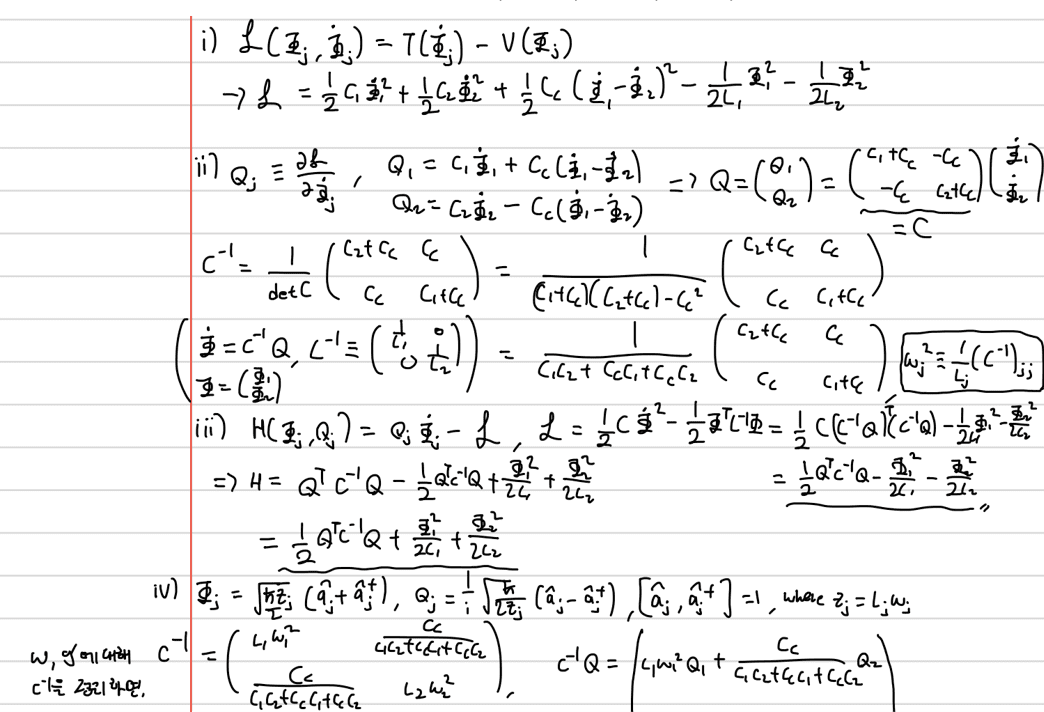 i) ℒ(Φ_j, Φ̇_j) = T(Φ̇_j) − V(Φ_j)
→ ℒ = 1/2 C₁Φ̇₁² + 1/2 C₂Φ̇₂² + 1/2 C_c (Φ̇₁ − Φ̇₂)² − 1/2L₁ Φ₁² − 1/2L₂ Φ₂²
ii) Q_j ≡ ∂ℒ/∂Φ̇_j , Q₁ = C₁Φ̇₁ + C_c(Φ̇₁ − Φ̇₂) Q₂ = C₂Φ̇₂ − C_c(Φ̇₁ − Φ̇₂) => Q = (Q₁ Q₂) = (C₁+C_c −C_c −C_c C₂+C_c)(Φ̇₁ Φ̇₂)
= C
C⁻¹ = 1/detC (C₂+C_c C_c C_c C₁+C_c) = 1/((C₁+C_c)(C₂+C_c) − C_c²) (C₂+C_c C_c C_c C₁+C_c)
(Φ̇ = C⁻¹Q, L⁻¹ ≡ (1/L₁ 0 0 1/L₂) Φ = (Φ₁ Φ₂)) = 1/(C₁C₂ + C_cC₁ + C_cC₂) (C₂+C_c C_c C_c C₁+C_c), ω_j² ≡ 1/L_j (C⁻¹)_jj
iii) H(Φ_j, Q_j) = Q_jΦ̇_j − ℒ , ℒ = 1/2 CΦ̇² − 1/2 ΦᵀL⁻¹Φ = 1/2 C(C⁻¹Q)ᵀ(C⁻¹Q) − 1/2L₁ Φ₁² − Φ₂²/2L₂
=> H = QᵀC⁻¹Q − 1/2 QᵀC⁻¹Q + Φ₁²/2L₁ + Φ₂²/2L₂ = 1/2 QᵀC⁻¹Q − Φ₁²/2L₁ − Φ₂²/2L₂ 〃
= 1/2 QᵀC⁻¹Q + Φ₁²/2L₁ + Φ₂²/2L₂
iv) Φ_j = √(ħz_j/2) (â_j + â_j†), Q_j = 1/i √(ħ/2z_j) (â_j − â_j†), [â_j, â_j†] = 1, where z_j = L_jω_j
ω, 에 대해 C⁻¹ = (L₁ω₁² C_c/(C₁C₂+C_cC₁+C_cC₂) C_c/(C₁C₂+C_cC₁+C_cC₂) L₂ω₂²), C⁻¹Q = (L₁ω₁²Q₁ + C_c/(C₁C₂+C_cC₁+C_cC₂) Q₂)
C⁻¹를 정리하면,